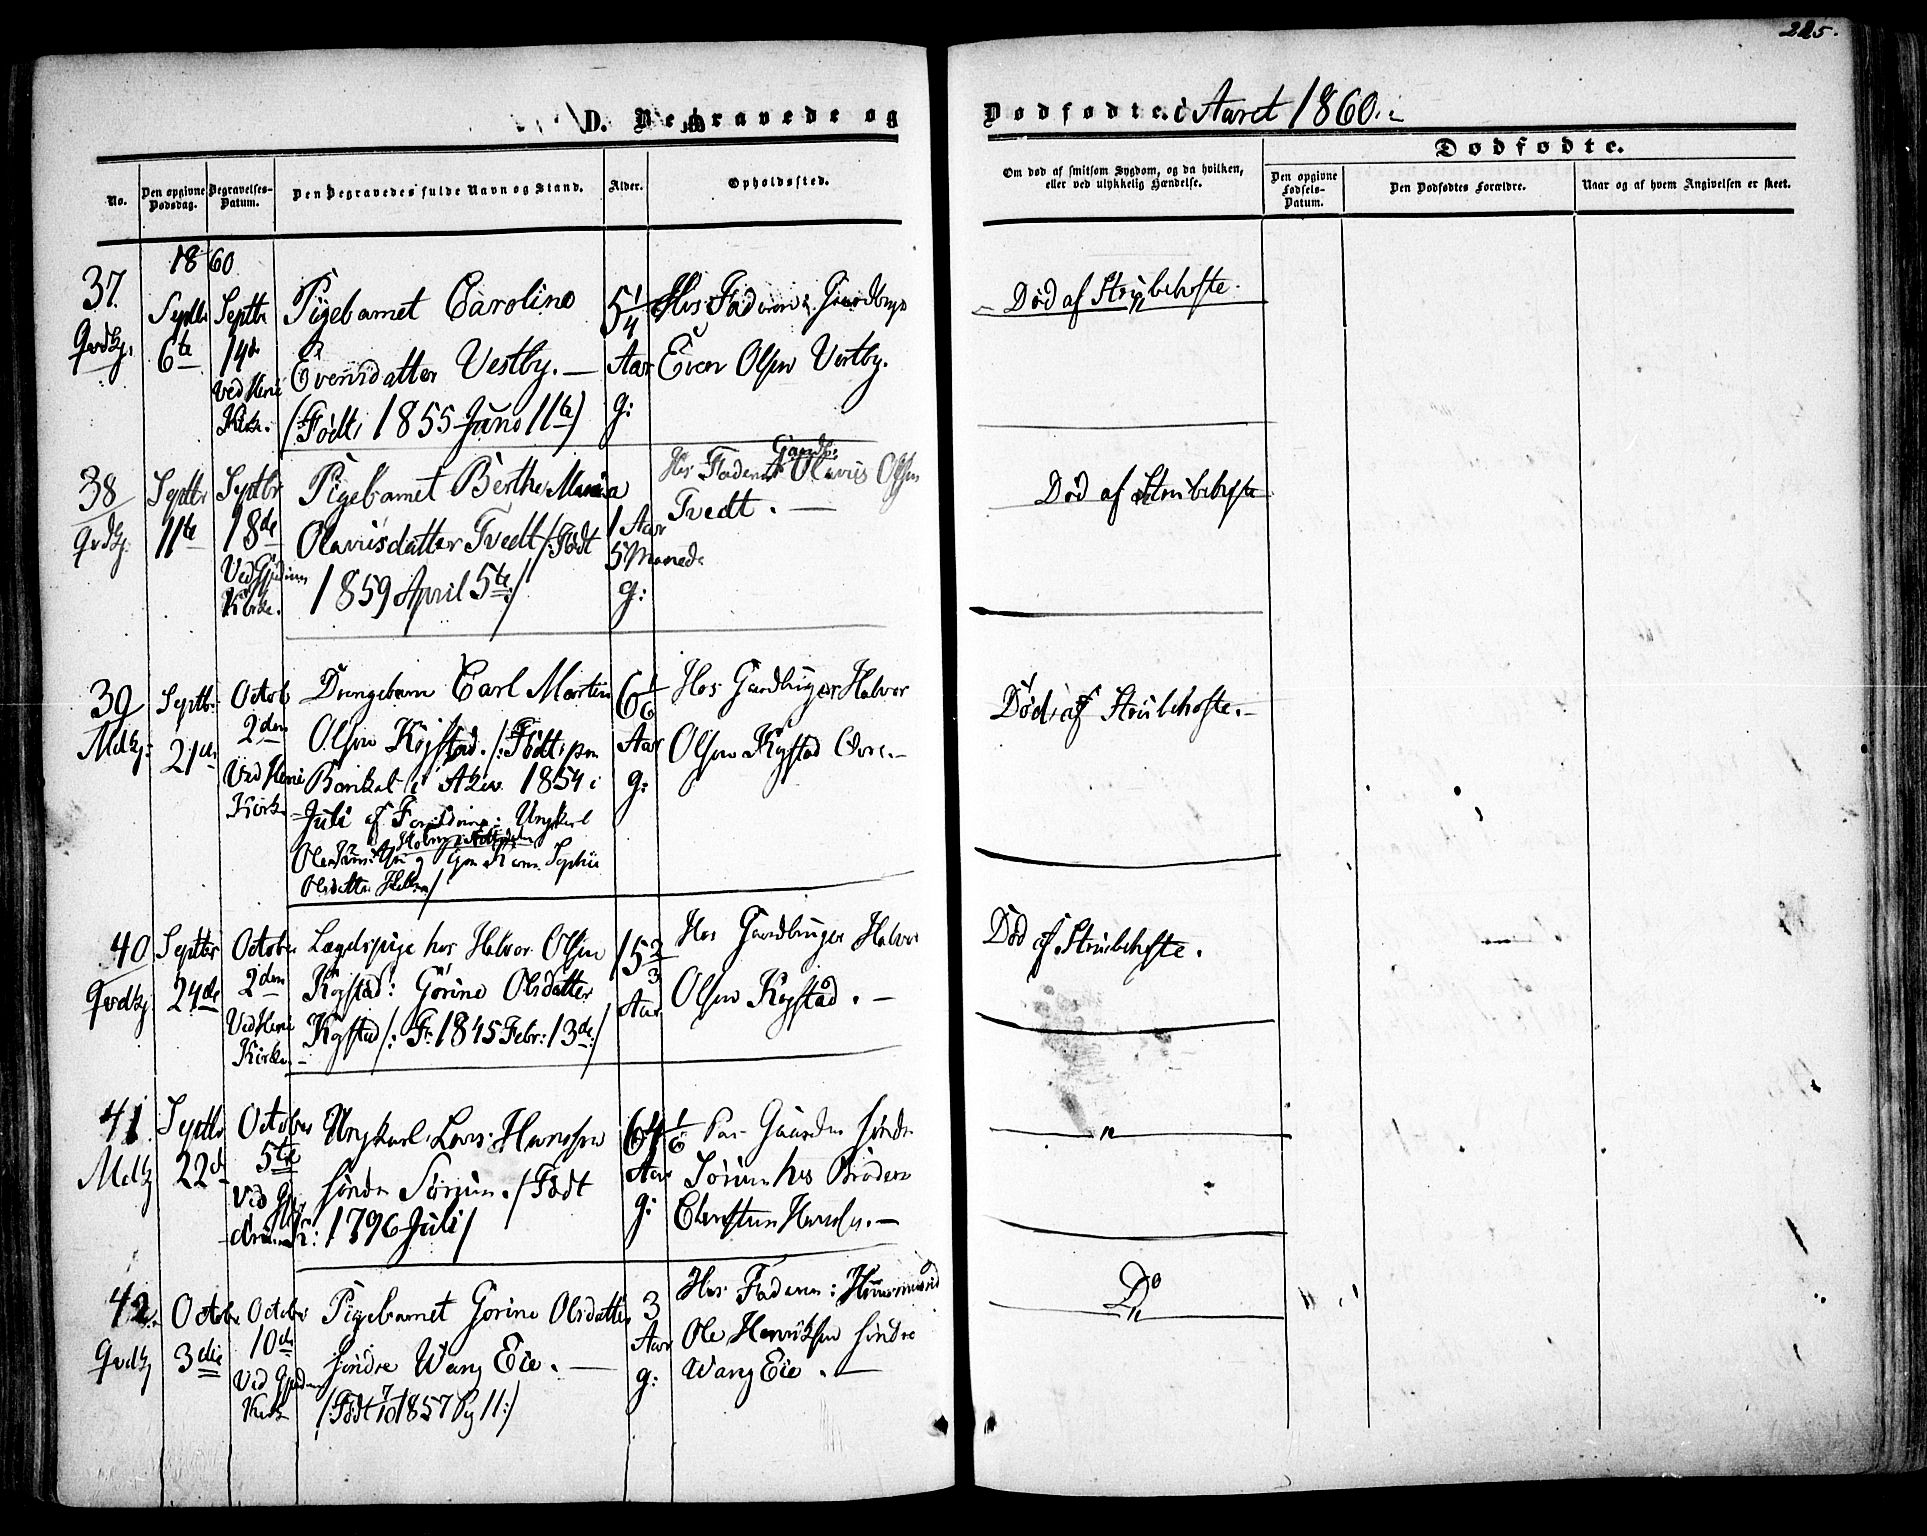 225.
D. Begravede og Dødfødte i Aaret 1860.
Dødfødte.
No.
Den opgivne Dødsdag.
Begravelses-Datum.
Den Begravedes fulde Navn og Stand.
Alder.
Opholdssted.
Om død af smitsom Sygdom, og da hvilken,
eller ved ulykkelig Hændelse.
Den opgivne Fødsels-Datum.
Den Dødfødtes Forældre.
Naar og af hvem Angivelsen er skeet.
1860
37.
Qvdkj.
Septbr
6te
Septbr
14de
Ved Heni
Kirk.
Pigebarnet Caroline
Evensdatter Vestby. —
(Født 1855 Juno 11te)
5 1/4
Aar
g:
Hos Faderen Gaardbrugr
Even Olsen Vestby.
Død af Strubehoste.
38
Qvdkj.
Septbr
11te
Septbr
18de
Ved Gjedrum
Kirke.
Pigebarnet Berthe Maria
Olaviisdatter Tvedt /: Født
1859 April 5te:/
1 Aar
5 Maaneder
g:
Hos Faderen Gaardb: Olaviis Olsen
Tvedt. —
Død af Strubehoste
39
Mdkj:
Septbr
21de
Octob
2den
Ved Heni
Kirke
Drengebarn Carl Martin
Olsen Kogstad. /: Født paa
i Aker 1854 i
Juli af Forældrene: Ungkarl
Sophie
Olsdatter
6 1/6
Aar
g:
Hos Gaardbruger Halvor
Olsen Kogstad Øvre. —
Død af Strubehoste. —
40
Qvdkj
Septbr
24de
October
2den
Ved Heni
Kirke
Lægdspige hos Halvor Olsen
Kogstad: Gorine Olsdatter
Kogstad /: F: 1845 Febr: 13de:/
15 2/3
Aar
Hos Gaardbruger Halvor
Olsen Kogstad. —
Død af Strubehoste.
41
Mdkj
Septbr
22d
October
5te
Ved Gje
drum K:
Ungkarl Lars Hanssen
søndre Sørum. /Født
1796 Juli/
64 1/6
Aar
g:
Paa Gaarden søndre
Sørum hos Broderen
Christian Hansen. —
"
42
Qvdkj
Octobr
3die
October
10de
Ved Gjedrum
Kirk
Pigebarnet Gorine Olsdatter
søndre Wang Eie. —
/:Født 7/10 1857 Pg 11:/
3
Aar
g:
Hos Faderen: Huusmand
Ole Henriksen søndre
Wang Eie. —
Do